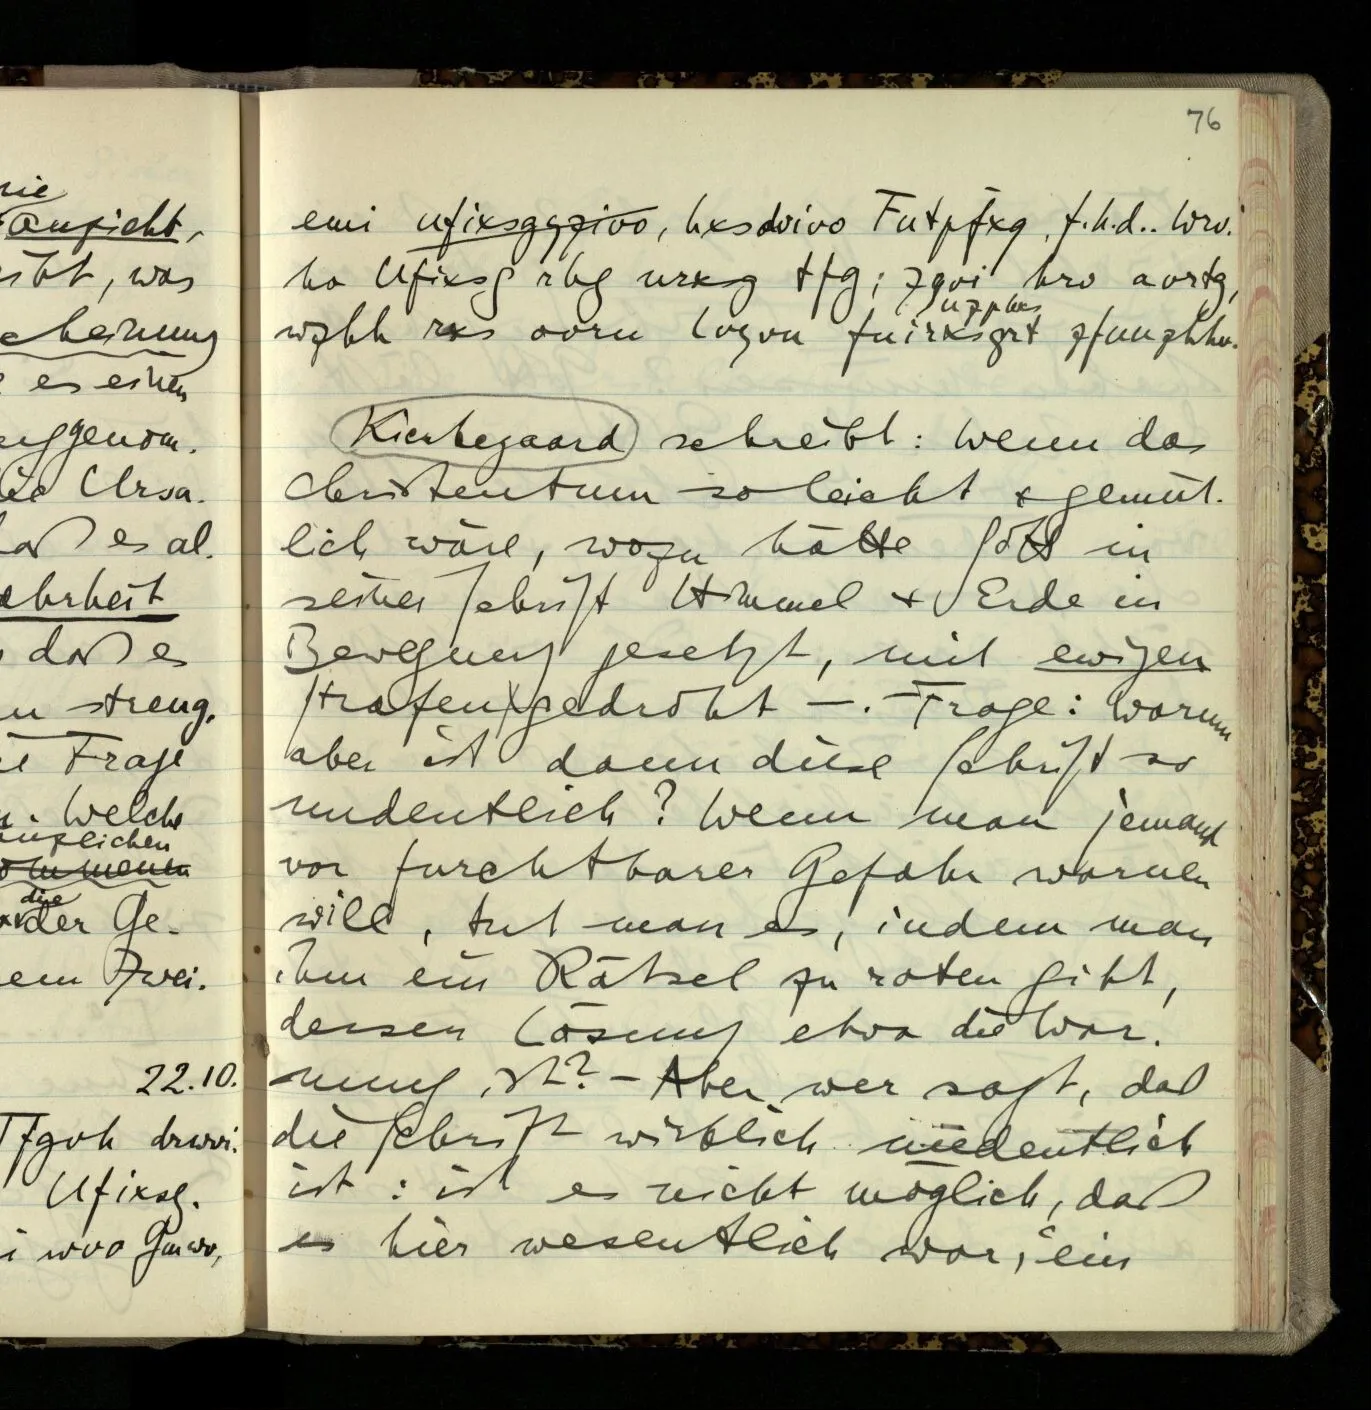 nie
Ansicht,
ibt, was
scheinung
es einen
nggenom.
die Ursa.
daß es al.
ehrheit
daß es
n streng.
ie Frage
n. Welche
glichen
mmenen
die
der Ge-
em Zwei.
22.10.
Ufixsg.
i wvo
76
emi ufixsgyzivo, hxsdvivo Futpfxg, f.h.d.. wrv.
ho Ufixsg rhg urxg tfg; zgvi hrv avrtg,
uzphxs
wzhh rxs ovru lvgvu fuirxsgrt zfuuzhhv.
Kierkegaard schreibt: Wenn das
Christentum so leicht & gemüt-
lich wäre, wozu hätte Gott in
seiner Schrift Himmel & Erde in
Bewegung gesetzt, mit ewigen
Strafen gedroht –. Frage: Warum
aber ist dann diese Schrift so
undeutlich? Wenn man jemand
vor furchtbarer Gefahr warnen
will, tut man es, indem man
ihm ein Rätsel zu raten gibt,
dessen Lösung etwa die War-
nung ist? – Aber wer sagt, daß
die Schrift wirklich undeutlich
ist: ist es nicht möglich, daß
es hier wesentlich war, ein